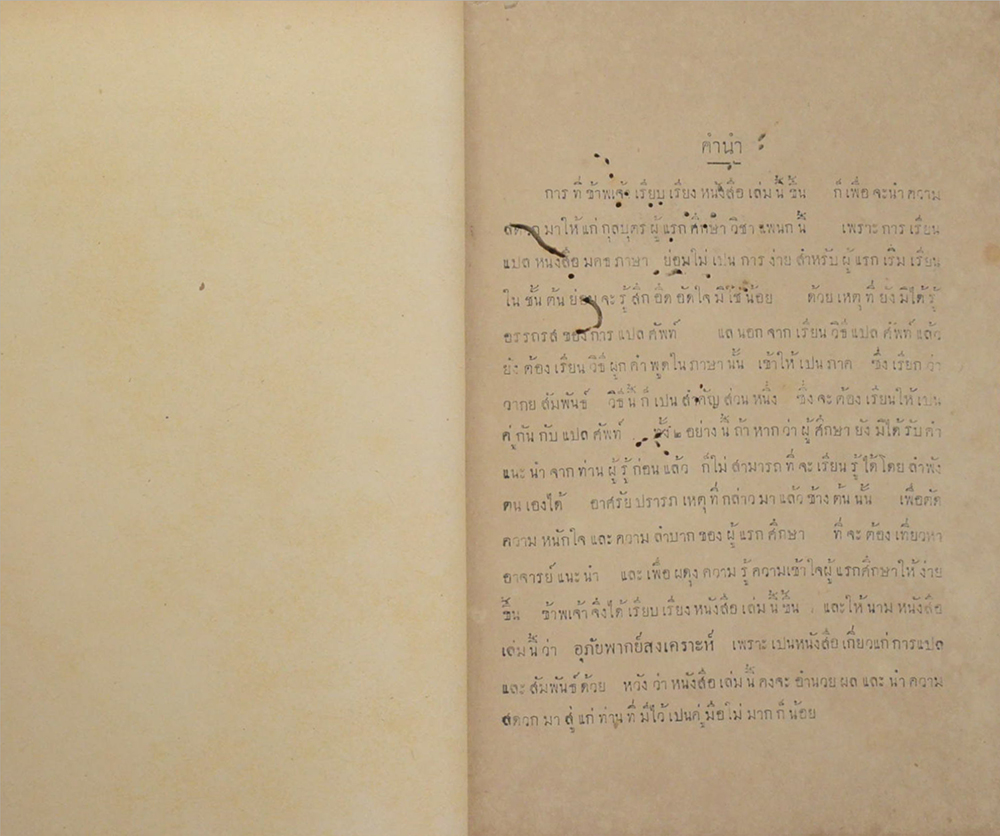 คำนำ
การ ที่ ข้าพเจ้า เรียบ เรียง หนังสือ เล่ม นี้ ขึ้น ก็ เพื่อ จะนำ ความ
สดวก มาให้ แก่ กุลบุตร ผู้ แรก ศึกษา วิชา แพนก นี้ เพราะ การ เรียน
แปล หนังสือ มคธ ภาษา ย่อมไม่ เปน การ ง่าย สำหรับ ผู้ แรก เริ่ม เรียน
ใน ชั้น ต้น ย่อม จะ รู้ สึก อึด อัดใจ มิใช่ น้อย ด้วย เหตุ ที่ ยัง มิได้ รู้
อรรถรส ของ การ แปล ศัพท์ แล นอก จาก เรียน วิธี แปล ศัพท์ แล้ว
ยัง ต้อง เรียน วิธี ผูก คำ พูด ใน ภาษา นั้น เข้าให้ เปน ภาค ซึ่ง เรียก ว่า
วากย สัมพันธ์ วิธี นี้ ก็ เปน สำคัญ ส่วน หนึ่ง ซึ่ง จะ ต้อง เรียนให้ เปน
คู่ กัน กับ แปล ศัพท์ ทั้ง ๒ อย่าง นี้ ถ้า หาก ว่า ผู้ ศึกษา ยัง มิได้ รับ คำ
แนะ นำ จาก ท่าน ผู้ รู้ ก่อน แล้ว ก็ไม่ สามารถ ที่ จะ เรียน รู้ ได้ โดย ลำพัง
ตน เองได้ อาศรัย ปรารภ เหตุ ที่ กล่าว มา แล้ว ข้าง ต้น นั้น เพื่อตัด
ความ หนักใจ และ ความ ลำบาก ของ ผู้ แรก ศึกษา ที่ จะ ต้อง เที่ยวหา
อาจารย์ แนะ นำ และ เพื่อ ผดุง ความ รู้ ความเข้าใจผู้ แรกศึกษาให้ ง่าย
ขึ้น ข้าพเจ้า จึงได้ เรียบ เรียง หนังสือ เล่ม นี้ ขึ้น และให้ นาม หนังสือ
เล่ม นี้ ว่า อุภัยพากย์สงเคราะห์ เพราะ เปนหนังสือ เกี่ยวแก่ การแปล
และ สัมพันธ์ ด้วย หวัง ว่า หนังสือ เล่ม นี้ คงจะ อำนวย ผล และ นำ ความ
สดวก มา สู่ แก่ ท่าน ที่ มีไว้ เปนคู่ มือไม่ มาก ก็ น้อย